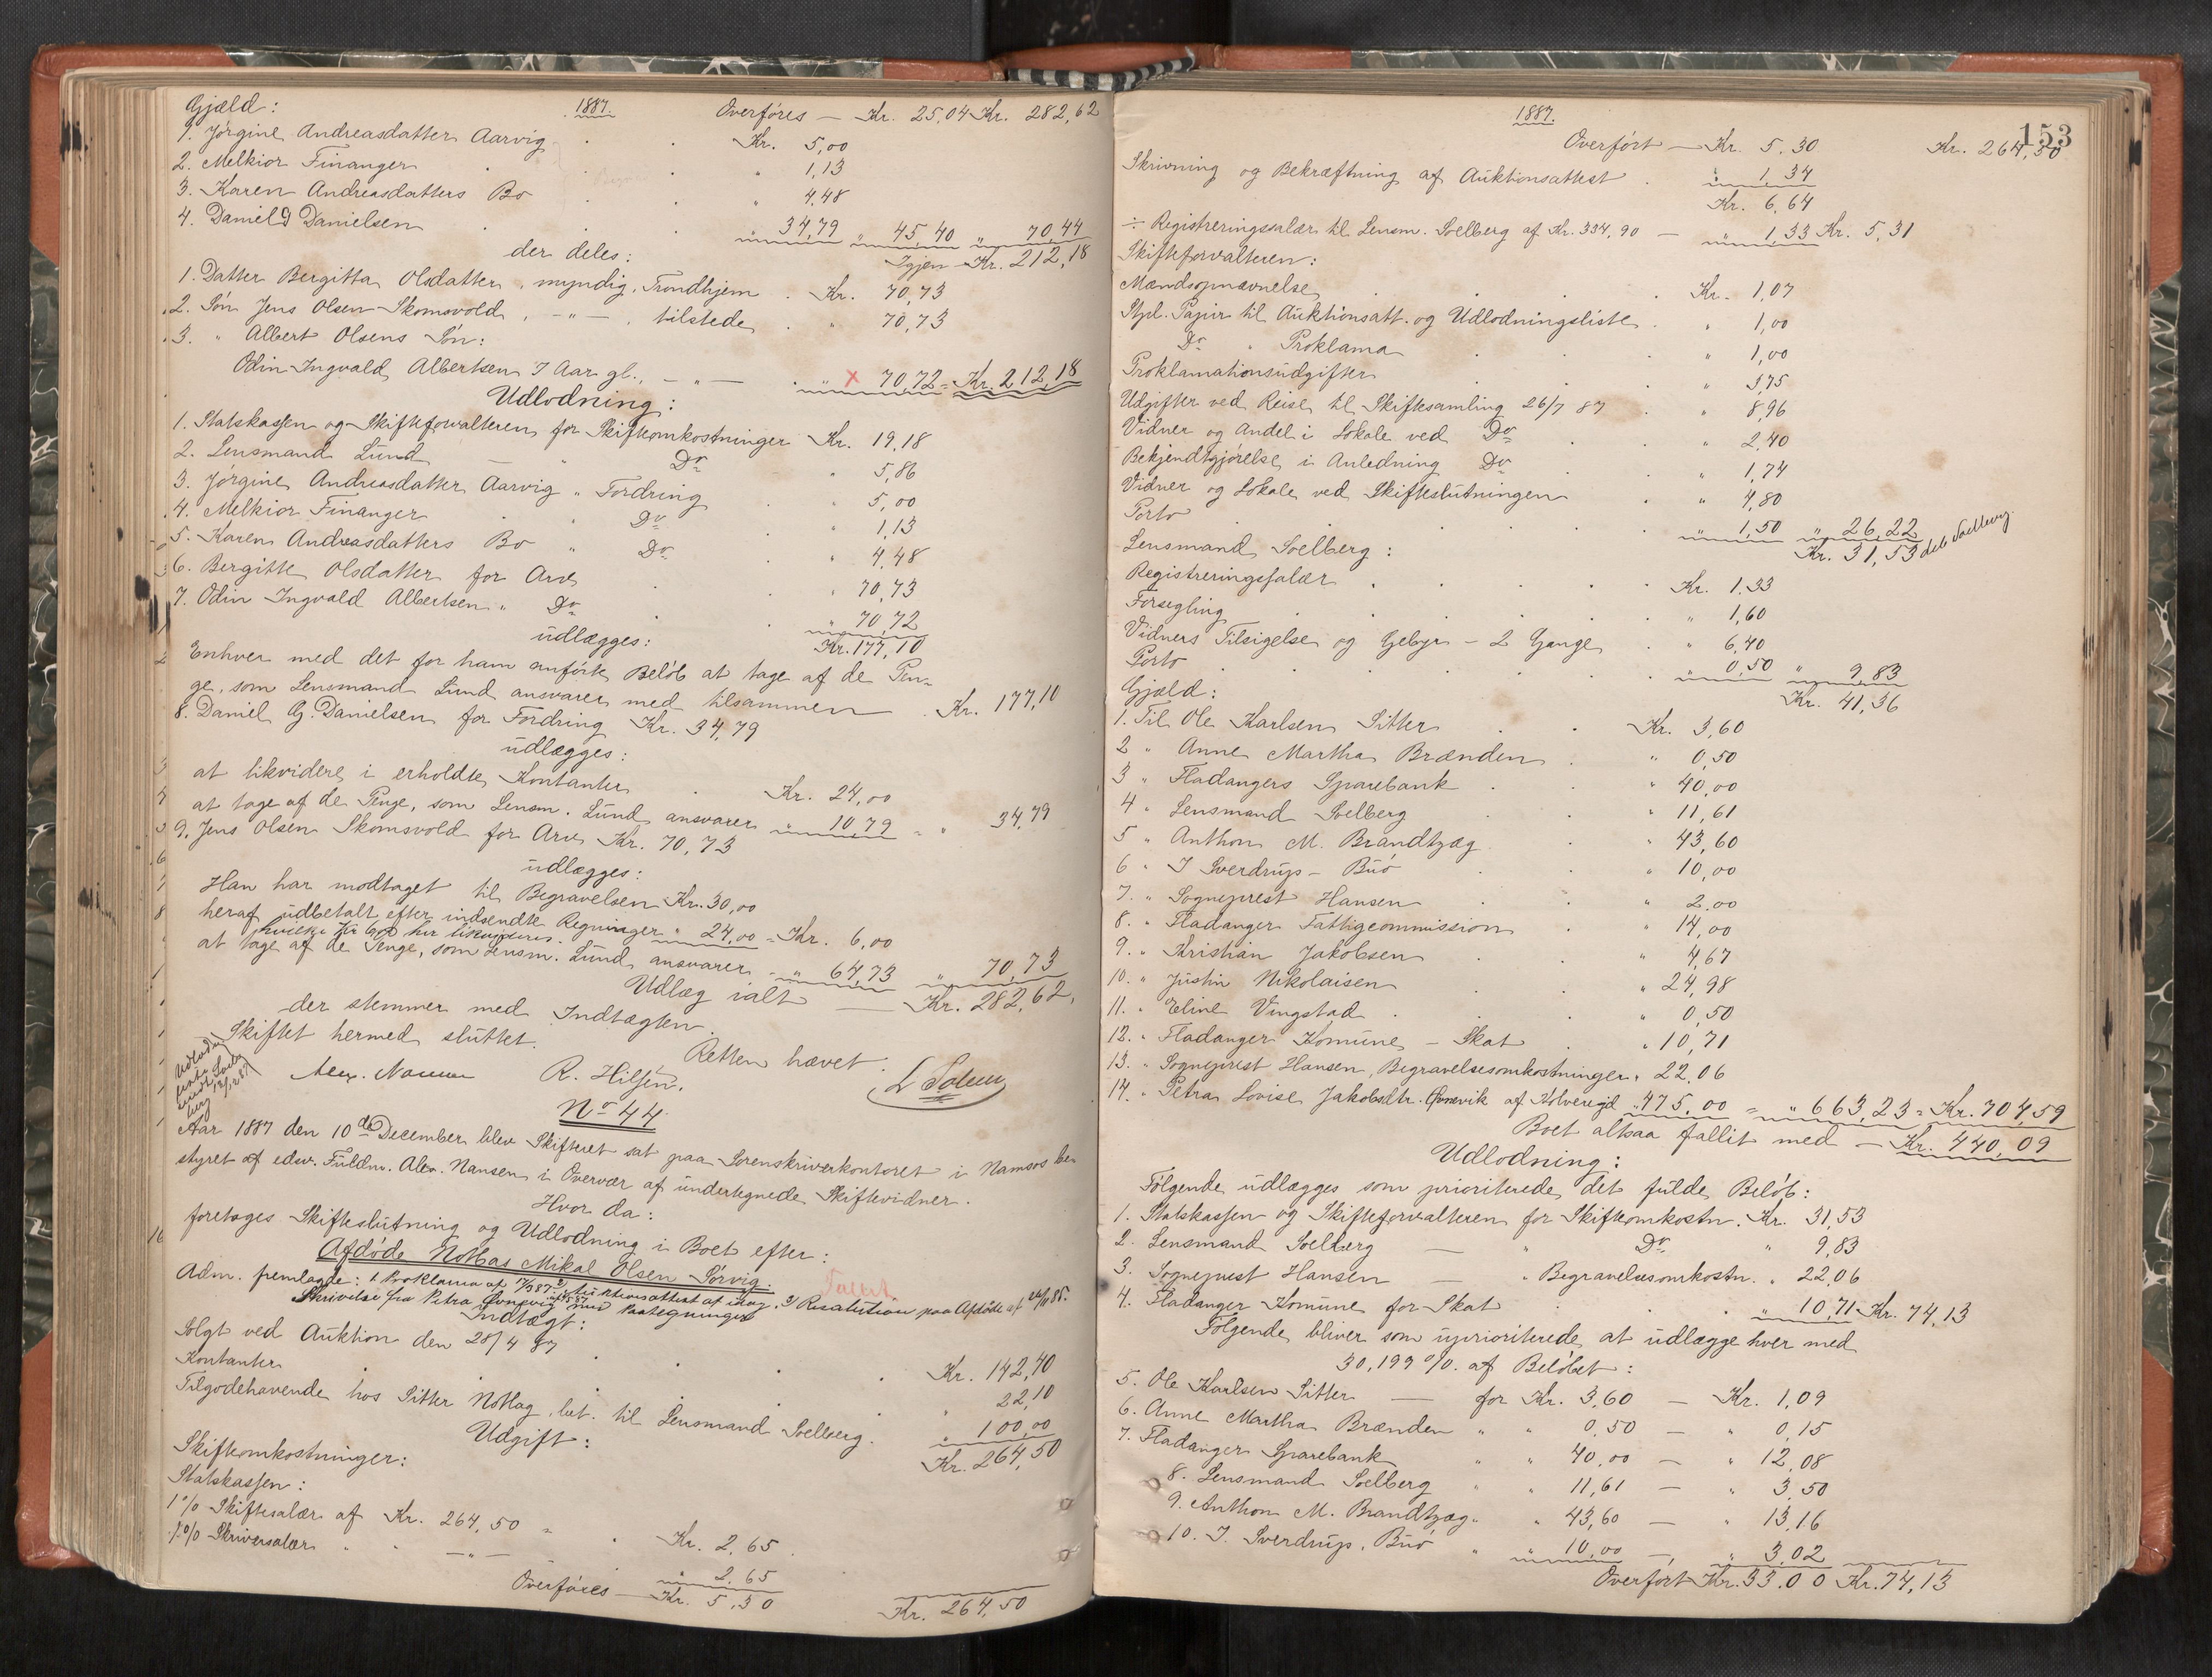 Gjæld: 1887. Overføres — Kr. 25,04 Kr. 282,62
1. Jørgine Andreasdatter Aarvig . . Kr. 5,00
2. Melkior Finanger . . . " 1,13
3. Karen Andreasdatters Bo . . " 4,48
4. Daniel G Danielsen . . . " 34,79 " 45,40 " 70,44
der deles: Igjen Kr. 212,18
1. Datter Bergitta Olsdatter, myndig, Trondhjem . Kr. 70,73
2. Søn Jens Olsen Skomsvold, -"- , tilstede . " 70,73
3. " Albert Olsens Søn:
Odin Ingvald Albertsen 7 Aar gl., - " - . " x 70,72 = Kr. 212,18
Udlodning:
1. Statskassen og Skifteforvalteren for Skifteomkostninger Kr. 19,18
2. Lensmand Lund — " Do " 5,86
3. Jørgine Andreasdatter Aarvig " Fordring . " 5,00
4. Melkior Finanger . " Do . " 1,13
5. Karen Andreasdatters Bo " Do . " 4,48
6. Bergitte Olsdatter for Arv . . " 70,73
7. Odin Ingvald Albertsen " Do . . " 70,72
udlægges: Kr. 177,10
Enhver med det for ham anførte Beløb at tage af de Pen-
ge, som Lensmand Lund ansvarer med tilsammen . Kr. 177,10
8. Daniel G. Danielsen for Fordring Kr. 34,79
udlægges:
at likvidere i erholdte Kontanter . Kr. 24,00
at tage af de Penge, som Lensm. Lund ansvarer " 10,79 = " 34,79
9. Jens Olsen Skomsvold for Arv Kr. 70,73
udlægges:
Han har modtaget til Begravelsen Kr. 30,00
heraf udbetalt efter indsendte Regninger " 24,00 = Kr. 6,00
hvilke Kr 6,00 her likvideres.
at tage af de Penge, som Lensm. Lund ansvarer " 64,73 " 70,73
Udlæg ialt — Kr. 282,62,
der stemmer med Indtægten.
Skiftet hermed sluttet. Retten hævet.
Alex. Nansen R. Hilsen, L Solem
No 44
Aar 1887 den 10de December blev Skifteret sat paa Sorenskriverkontoret i Namsos be-
styret af edsv. Fuldm. Alex. Nansen i Overvær af undertegnede Skiftevidner.
Hvor da:
foretoges Skifteslutning og Udlodning i Boet efter:
Afdøde Nottas Mikal Olsen Sørvig.
Adm. fremlagde: 1 Proklama af 17/3 87. 2, Auktionsattest af idag. 3 Resolution paa Afdøde af
Skrivelse fra Petra Øvnevig med Paategninger
Indtægt:
Solgt ved Auktion den 28/4 87 . . . Kr. 142,40
Kontanter . . . . " 22,10
Tilgodehavende hos Sitter Notlag, bet. til Lensmand Soelberg. " 100,00
Udgift: Kr. 264,50
Skifteomkostninger:
Statskassen:
1% Skiftesalær af Kr. 264,50 = . Kr. 2,65
1% Skriversalær " " —"— " 2,65
Overføres — Kr. 5,30 Kr. 264,50
153
1887.
Overført — Kr. 5,30 Kr. 264,50
Skrivning og Bekræftning af Auktionsattest . " 1,34
Kr. 6,64
÷ Registreringssalær til Lensm. Soelberg af Kr. 334,90 — " 1,33 Kr. 5,31
Skifteforvalteren:
Mændsopnævnelse . . . . Kr. 1,07
Stpl. Papir til Auktionsatt. og Udlodningsliste . " 1,00
Do " Proklama . . " 1,00
Proklamationsudgifter . . . " 3,75
Udgifter ved Reise til Skiftesamling 26/7 87 . " 8,96
Vidner og Andel i Lokale ved Do . . " 2,40
Bekjendtgjørelse i Anledning Do . . " 1,74
Vidner og Lokale ved Skifteslutningen . . " 4,80
Porto . . . . . " 1,50 " 26,22
Lensmand Soelberg: Kr. 31,53 deb Soelberg.
Registreringssalær . . . . Kr. 1,33
Forsegling . . . . . " 1,60
Vidners Tilsigelse og Gebyr - 2 Gange . " 6,40
Porto . . . . . " 0,50 " 9,83
Gjæld: Kr. 41,36
1. Til Ole Karlsen Sitter . . Kr. 3,60
2 " Anne Martha Brænden . " 0,50
3 " Fladangers Sparebank . . " 40,00
4 " Lensmand Soelberg . . " 11,61
5 " Anthon M. Brandtzæg . . " 43,60
6 " I Sverdrup - Buø . . " 10,00
7. " Sogneprest Hansen . . " 2,00
8. " Fladanger Fattigcommission . " 14,00
9. " Kristian Jakobsen . . " 4,67
10. " Justin Nikolaisen . . " 24,98
11. " Eline Vingstad . . " 0,50
12. " Fladanger Komune - Skat . " 10,71
13. " Sogneprest Hansen, Begravelsesomkostninger " 22,06
14. " Petra Lovise Jakobsdtr. Øvnevik af Kolvereid " 475,00 = " 663,23 = Kr. 704,59
Boet altsaa fallit med — Kr. 440,09
Udlodning:
Følgende udlægges som prioriterede det fulde Beløb:
1. Statskassen og Skifteforvalteren for Skifteomkostn. Kr. 31,53
2. Lensmand Soelberg — " Do " 9,83
3. Sogneprest Hansen — " Begravelsesomkostn. " 22,06
4. Fladanger Komune for Skat . . " 10,71 Kr. 74,13
Følgende bliver som uprioriterede at udlægge hver med
30,199 %. af Beløbet:
5. Ole Karlsen Sitter — for Kr. 3,60 — Kr. 1,09
6. Anne Martha Brænden " " 0,50 — " 0,15
7. Fladanger Sparebank " " 40,00 — " 12,08
8. Lensmand Soelberg " " 11,61 — " 3,50
9. Anthon M. Brandtzæg " " 43,60 — " 13,16
10. I. Sverdrup, Buø " " 10,00 — " 3,02
Overført Kr. 33,00 Kr. 74,13